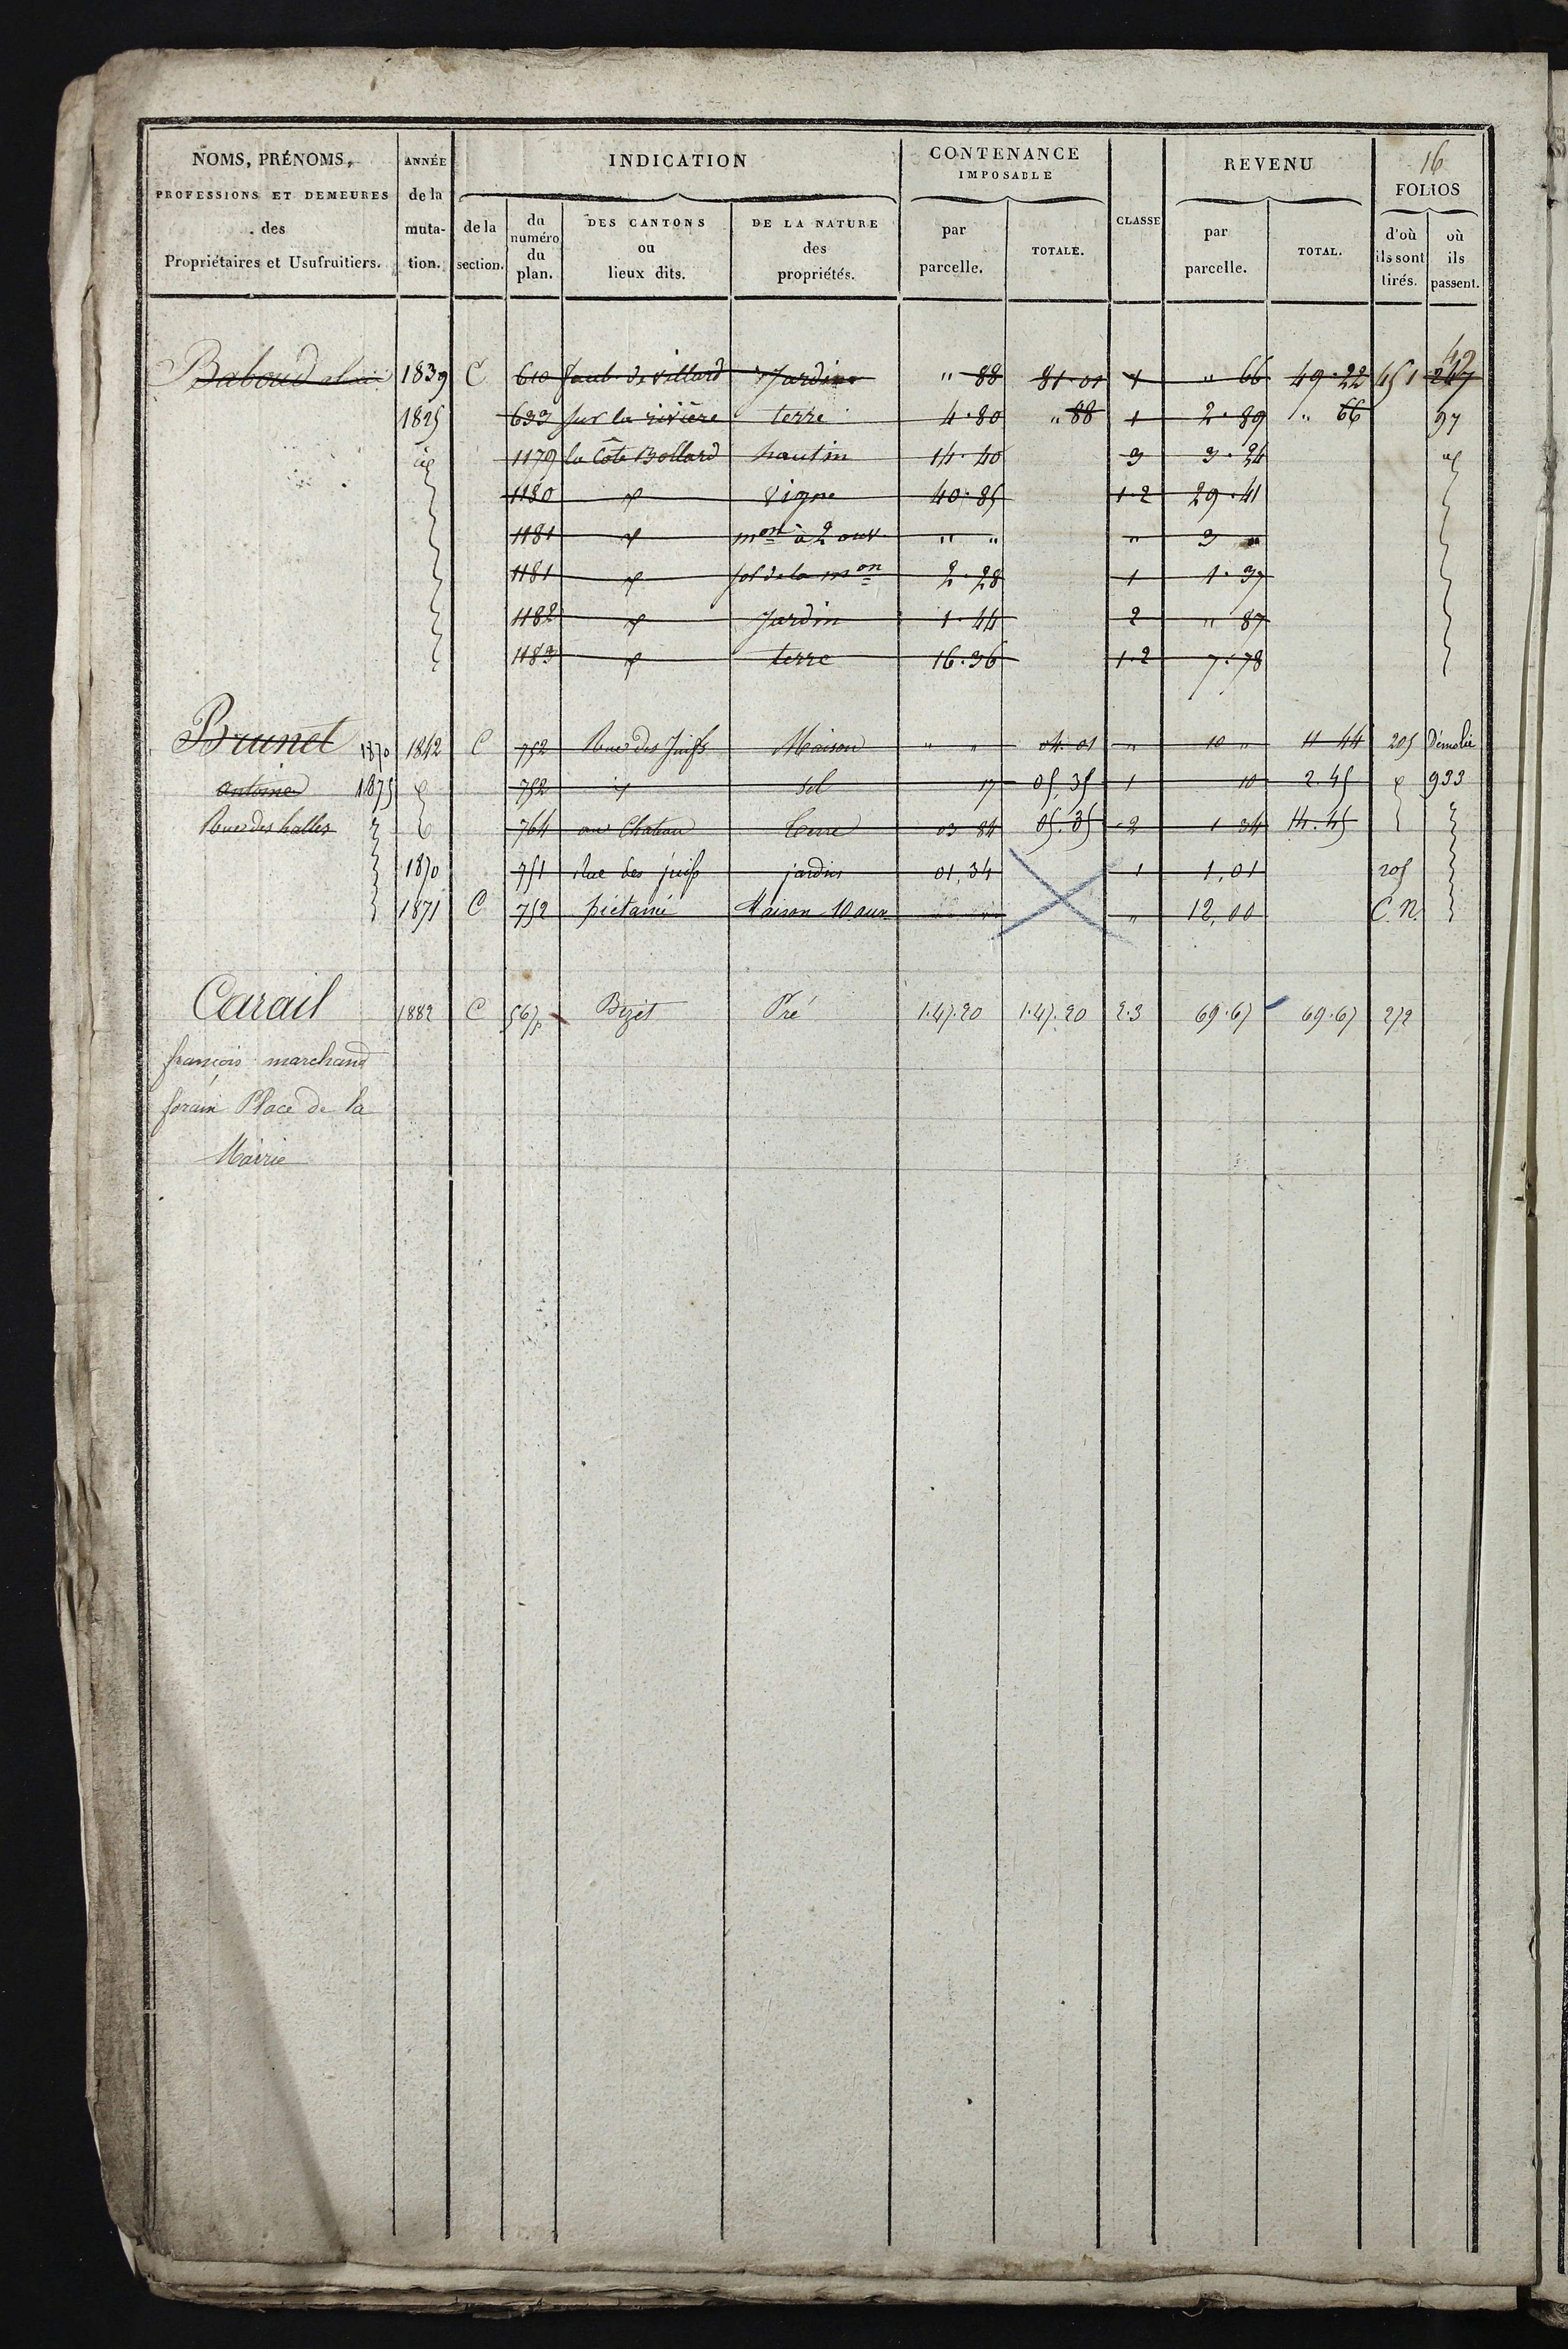 16
NOMS, PRÉNOMS, PROFESSIONS ET DEMEURES des Propriétaires et Usufruitiers.
ANNÉE de la muta- tion.
INDICATION
de la section.
du numéro du plan.
DES CANTONS ou lieux dits.
DE LA NATURE des propriétés.
CONTENANCE IMPOSABLE
par parcelle.
TOTALE.
CLASSE
REVENU
par parcelle.
TOTAL.
FOLIOS
d'où ils sont tirés.
où ils passent.
42
Baboud 1839 C 610 faub. de villard Jardin " 88 81·01 1 " 66 49·22 451 247
1825 633 sur la rivière terre 4·80 " 88 1 2·89 " 66 97
id 1179 la Côte Bollard hautin 14·40 3 3·24 id
1180 id vigne 40·85 1·2 29·41
1181 id mon à 2 ouv. " " " 3 "
1181 id sol de la mon 2·28 1 1·37
1182 id Jardin 1·44 2 " 87
1183 id terre 16·36 1·2 7·78
Brunet 1870 1842 C 752 Rue des Juifs Maison " " 04 01 " 10 " 11 44 205 Démolie
antoine 1875 id 752 id Sol 17 05,35 1 10 2.45 id 933
Rue des halles 764 au Chateau Terre 03 84 05.35 2 1 34 14.45
1870 751 Rue des juifs jardin 01,34 1 1,01 205
1871 C 752 Maison 10 ouv. " 12,00 C.N.
Carail 1882 C 567p Bizet Pré 1.47.20 1.47.20 2.3 69.67 69.67 272
françois marchand
forain Place de la
Mairie